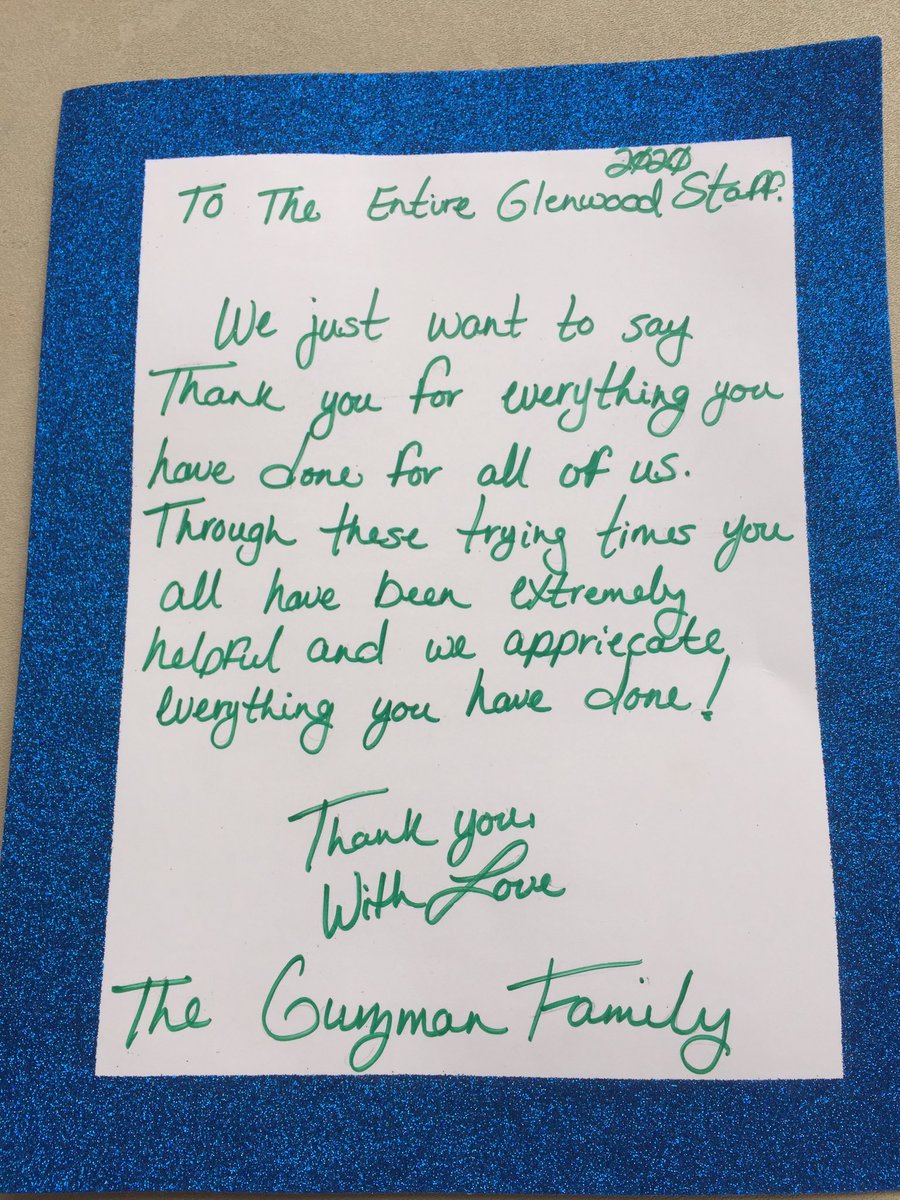 2020
To The Entire Glenwood Staff.
We just want to say
Thank you for everything you
have done for all of us.
Through these trying times you
all have been extremely
helpful and we appriecate
everything you have done!
Thank you.
With Love
The Guzman Family